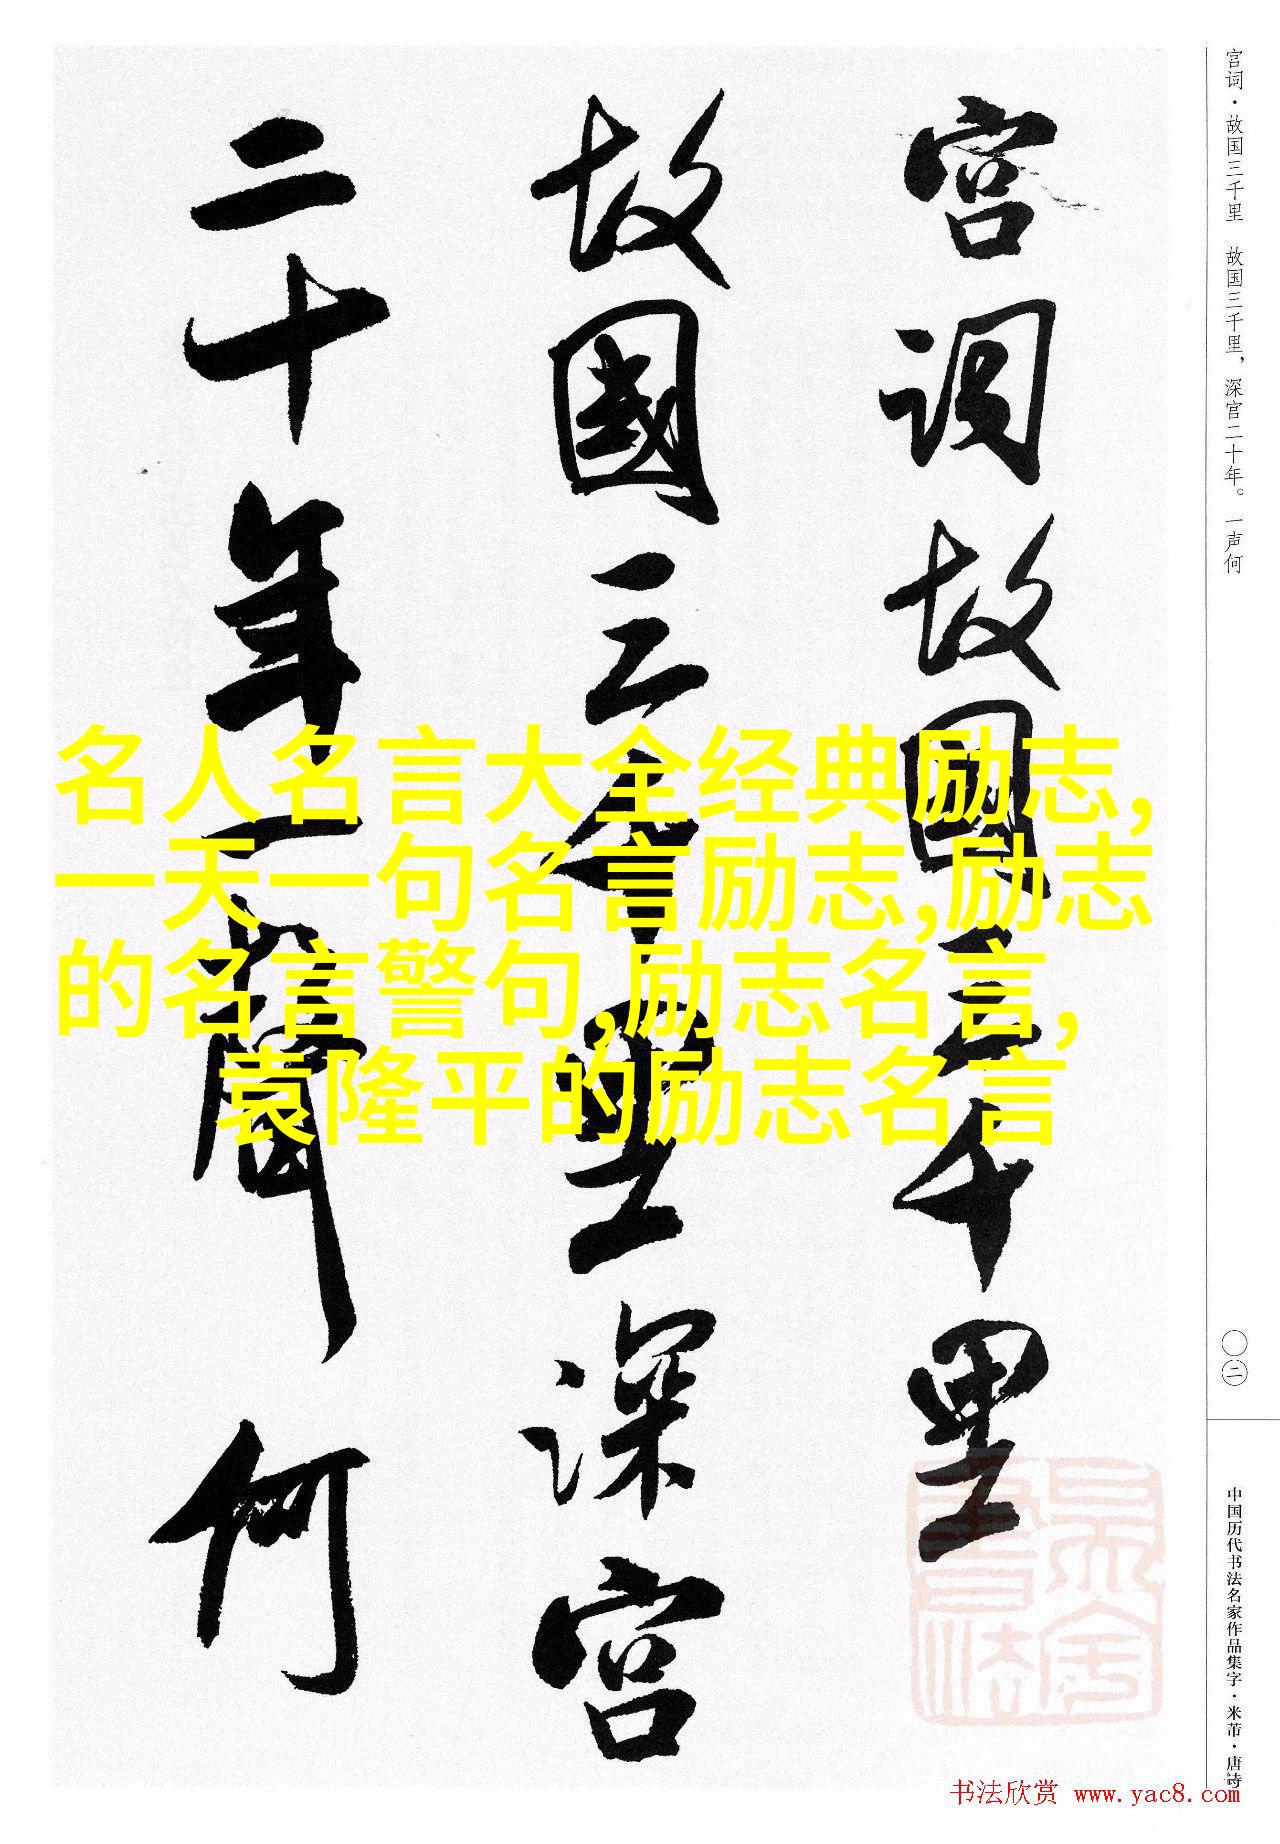 宫词故國三千里
故國三千里深宫
二十年一聲何
宫词·故国三千里 故国三千里，深宫二十年。一声何
〇二
中国历代书法名家作品集字·米芾·唐诗
名人名言大全经典励志,
一天一句名言励志,励志
的名言警句,励志名言,
袁隆平的励志名言
书法欣赏 www.yac8.com